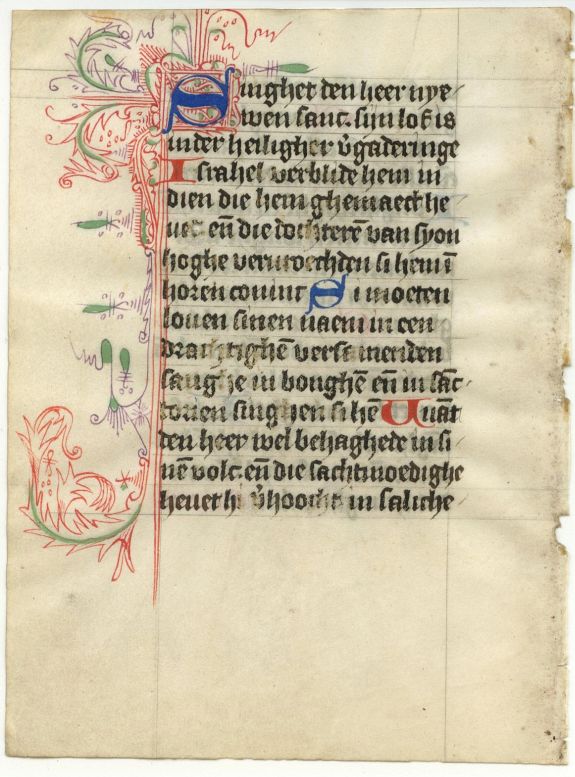 Singhet den heer nye
wen sanc. sijn lof is
in der heiligher v̄gaderinge
Israhel verblide hem in
dien die hem ghemaect he
uet en̄ die dochterē van syon
hoghe veruroechden si hem ī
horen coninc Si moeten
louen sinen naem in een
drachtighē versamenden
sanghe in bonghē en̄ in sāc
torien singhen si hē Uuāt
den heer wel behaghede in si
nē volc. en̄ die sachtmoedighe
heuet hi v̄hoocht in saliche